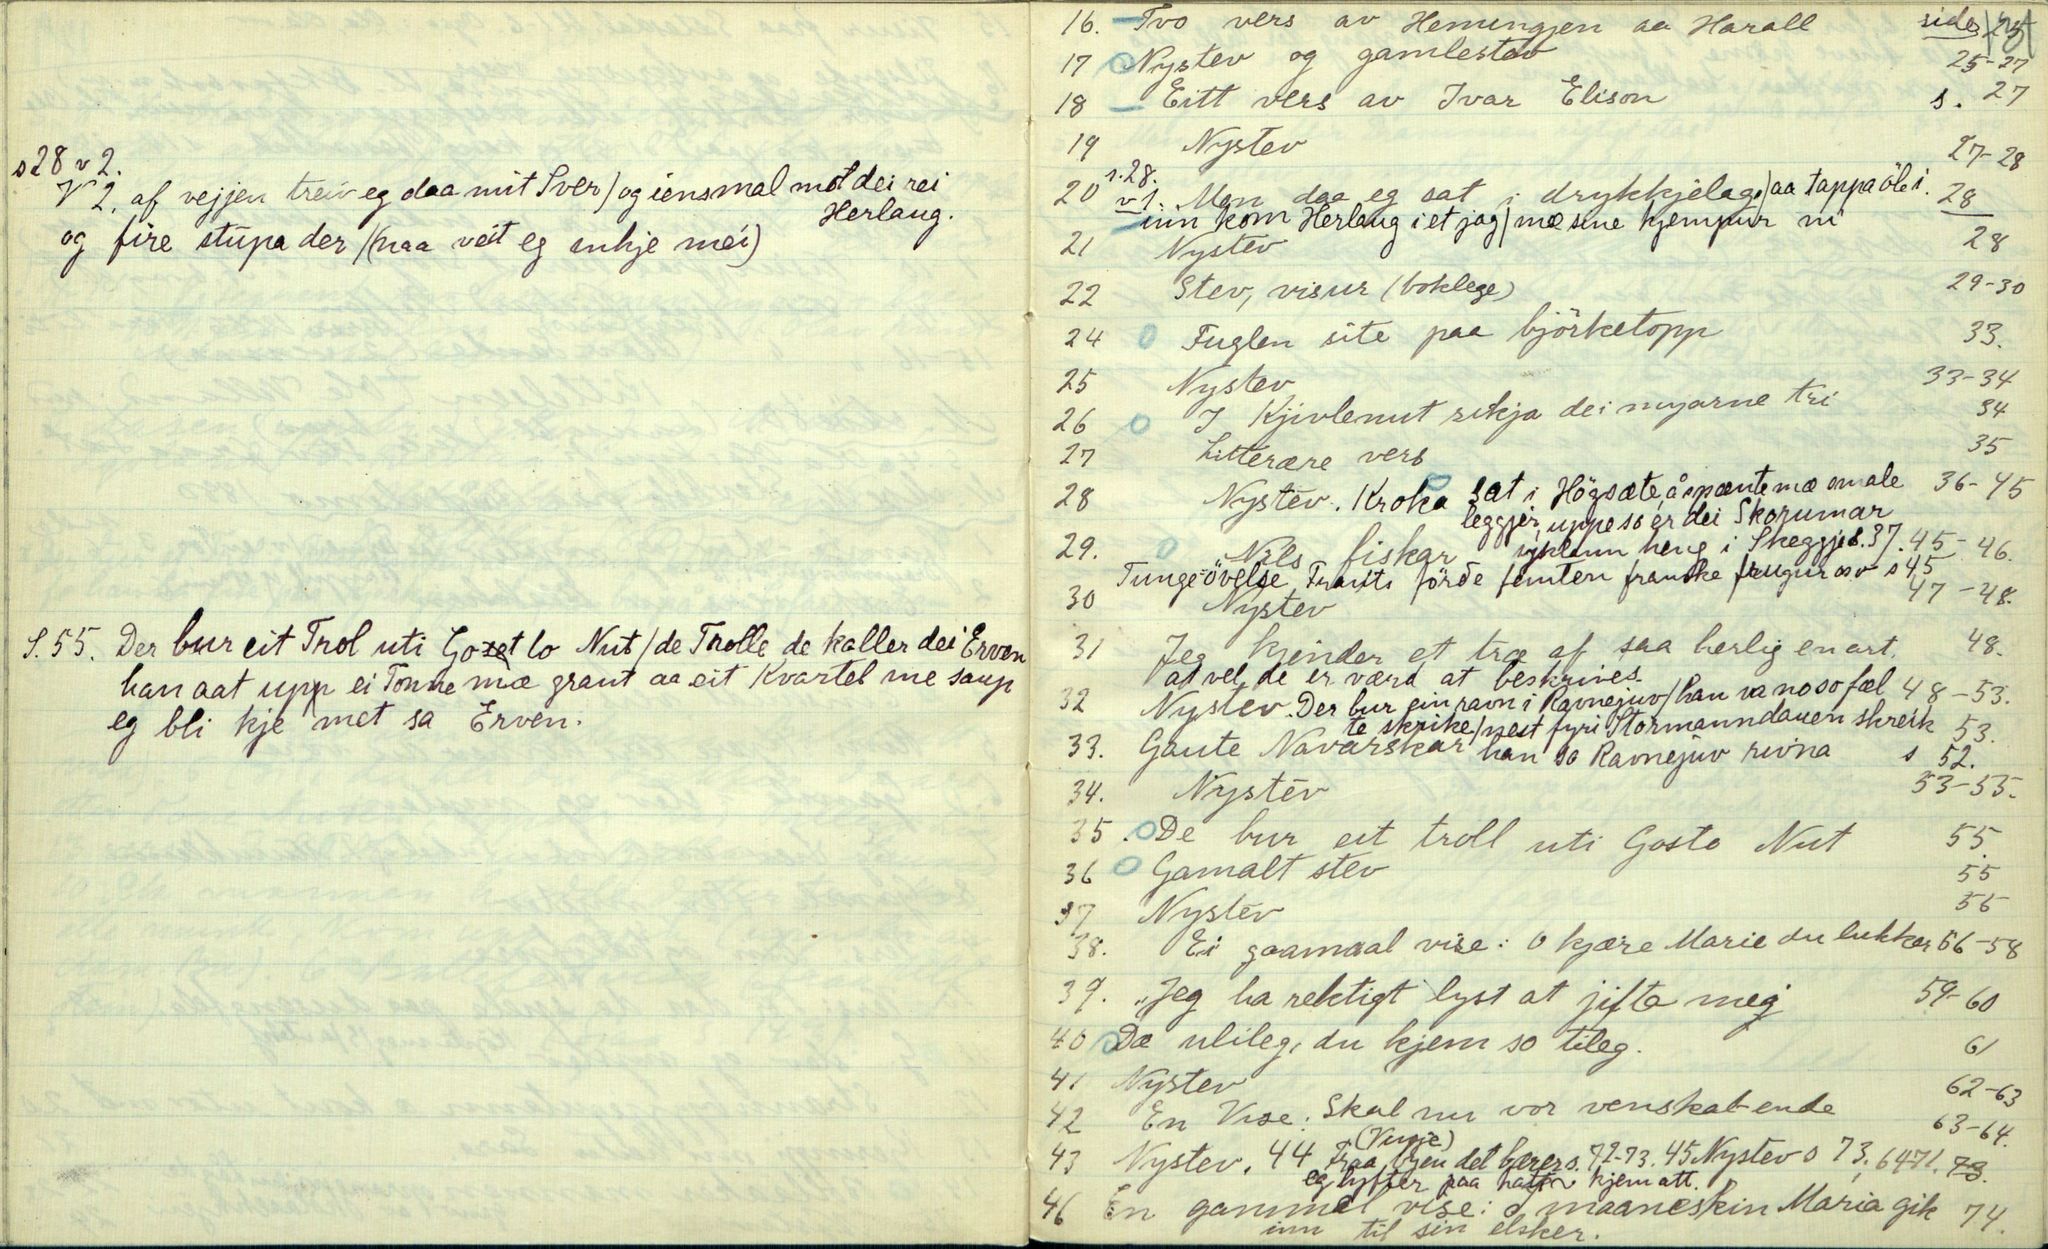 s 28 v 2.
V 2. af vejjen treiv eg daa mit Sver / og iensmal mot dei rei
Herlaug.
og fire stupa der / (naa veit eg inkje mei)
S. 55. Der bur eit Trol uti Gozet lo Nut / de Trolle de kaller dei Erven
han aat upp ei Tonne mæ graut aa eit Kvartel me saup
eg bli kje met sa Erven.
16. Tvo vers av Hemingjen aa Harall side 25
17 Nystev og gamlestev 25-27
18 Eitt vers av Ivar Elison s. 27
19 Nystev 27-28
s. 28.
20 v 1. Men daa eg sat i drykkjelag / aa tappa öl i. 28
inn kom Herlaug i et jag / mæ sine kjempur ni
21 Nystev 28
22 Stev, visur (boklege) 29-30
24 Fuglen site paa björketopp 33.
25 Nystev 33-34
26 I Kjivlenut sikja dei myarne tri 34
27 Litterære vers 35
28 Nystev. Kroka sat i Högsæte, å spænte mæ smale 36-45
leggjer, uppe so er dei Skorumar
29. Nils fiskar heng i Skeggje s. 37. 45-46.
Tunge-övelse Frants förde femten franske frugur osv s 45
30 Nystev 47-48.
31 Jeg kjender et træ af saa herlig en art. 48.
at vel de er værd at beskrives
32 Nystev. Der bur ein ravn i Ravnejuv / han va no so fæl 48-53.
te skrike / næst fyri Stormanndauen skreik 53.
33. Gaute Navarskar han so Ravnejuv rivna s 52.
34. Nystev 53-55.
35. De bur eit troll uti Gosto Nut 55
36 Gamalt stev 55
37 Nystev 55
38. Ei gaamaal vise: O kjære Marie du lukkar 56-58
39. "Jeg ha rektigt lyst at jifta meg 59-60
40 Dæ ulileg, du kjem so tileg. 61
41 Nystev 62-63
42 En Vise: Skal nu vor venskab ende 63-64.
(Vinje)
43 Nystev. 44 Fraa byen det bærer s. 72-73. 45 Nystev s 73, 6471. 73.
eg lyfter paa hatten kjem att.
46 En gammel vise: O maaneskin Maria gik 74.
inn til sin elsker.